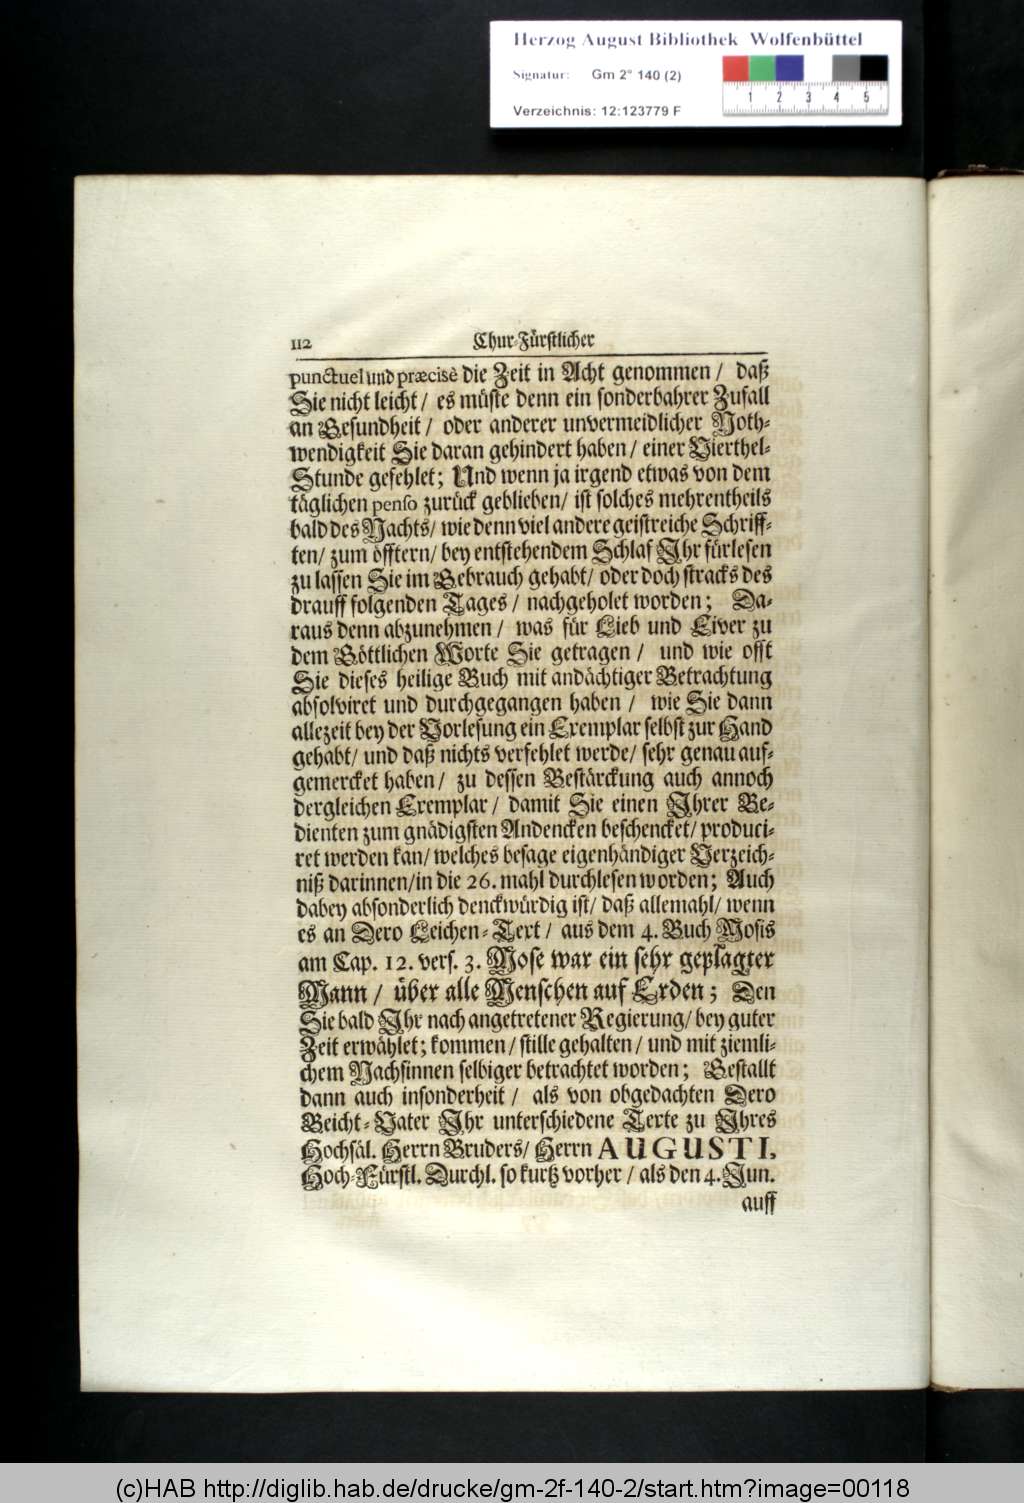 Herzog August Bibliothek Wolfenbüttel
Signatur: Gm 2° 140 (2)
1 2 3 4 5
Verzeichnis: 12:123779 F
112 Chur-Fürstlicher
punctuel und præcisè die Zeit in Acht genommen / daß
Sie nicht leicht / es müste denn ein sonderbahrer Zufall
an Gesundheit / oder anderer unvermeidlicher Noth-
wendigkeit Sie daran gehindert haben / einer Vierthel-
Stunde gefehlet; Und wenn ja irgend etwas von dem
täglichen penso zurück geblieben / ist solches mehrentheils
bald des Nachts / wie denn viel andere geistreiche Schriff-
ten / zum öfftern / bey entstehendem Schlaf Ihr fürlesen
zu lassen Sie im Gebrauch gehabt / oder doch stracks des
drauff folgenden Tages / nachgeholet worden; Da-
raus denn abzunehmen / was für Lieb und Eiver zu
dem Göttlichen Worte Sie getragen / und wie offt
Sie dieses heilige Buch mit andächtiger Betrachtung
absolviret und durchgegangen haben / wie Sie dann
allezeit bey der Vorlesung ein Exemplar selbst zur Hand
gehabt / und daß nichts verfehlet werde / sehr genau auf-
gemercket haben / zu dessen Bestärckung auch annoch
dergleichen Exemplar / damit Sie einen Ihrer Be-
dienten zum gnädigsten Andencken beschencket / produci-
ret werden kan / welches besage eigenhändiger Verzeich-
niß darinnen / in die 26. mahl durchlesen worden; Auch
dabey absonderlich denckwürdig ist / daß allemahl / wenn
es an Dero Leichen-Text / aus dem 4. Buch Mosis
am Cap. 12. vers. 3. Mose war ein sehr geplagter
Mann / über alle Menschen auf Erden; Den
Sie bald Ihr nach angetretener Regierung / bey guter
Zeit erwählet; kommen / stille gehalten / und mit ziemli-
chem Nachsinnen selbiger betrachtet worden; Gestallt
dann auch insonderheit / als von obgedachten Dero
Beicht-Vater Ihr unterschiedene Texte zu Ihres
Hochsäl. Herrn Bruders / Herrn AUGUSTI,
Hoch-Fürstl. Durchl. so kurtz vorher / als den 4. Jun.
auff
(c)HAB http://diglib.hab.de/drucke/gm-2f-140-2/start.htm?image=00118